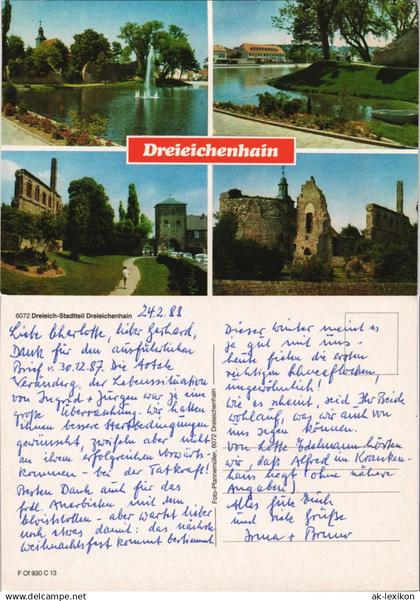 Dreieichenhain
6072 Dreieich-Stadtteil Dreieichenhain
24.2.88
Liebe Charlotte, lieber Gerhard,
Dank für den ausführlichen
Brief v. 30.12.87. Die totale
Veränderg. der Lebenssituation
von Ingrid + Jürgen war ja eine
große Überraschung. Wir hätten
ihnen bessere Startbedingungen
gewünscht, zweifeln aber nicht
an ihrem erfolgreichen Vorwärts-
kommen - bei der Tatkraft!
Besten Dank auch für das
frdl. Anerbieten mit den
- aber wartet lieber
noch etwas damit: das nächste
Weihnachtsfest kommt bestimmt
F Of 930 C 13
Foto-Pfannemüller, 6072 Dreieichenhain
Dieser Winter meint es
ja gut mit uns -
heute fielen die ersten
richtigen Schneeflocken,
ungewöhnlich!
Wie es scheint, seid Ihr Beide
wohlauf, was wir auch von
uns sagen können.
Von Lotte Edelmann hörten
wir, daß Alfred im Kranken-
haus liegt (ohne nähere
Angaben)
Alles Gute Euch
und viele Grüße
Irma + Bruno
© ak-lexikon.com